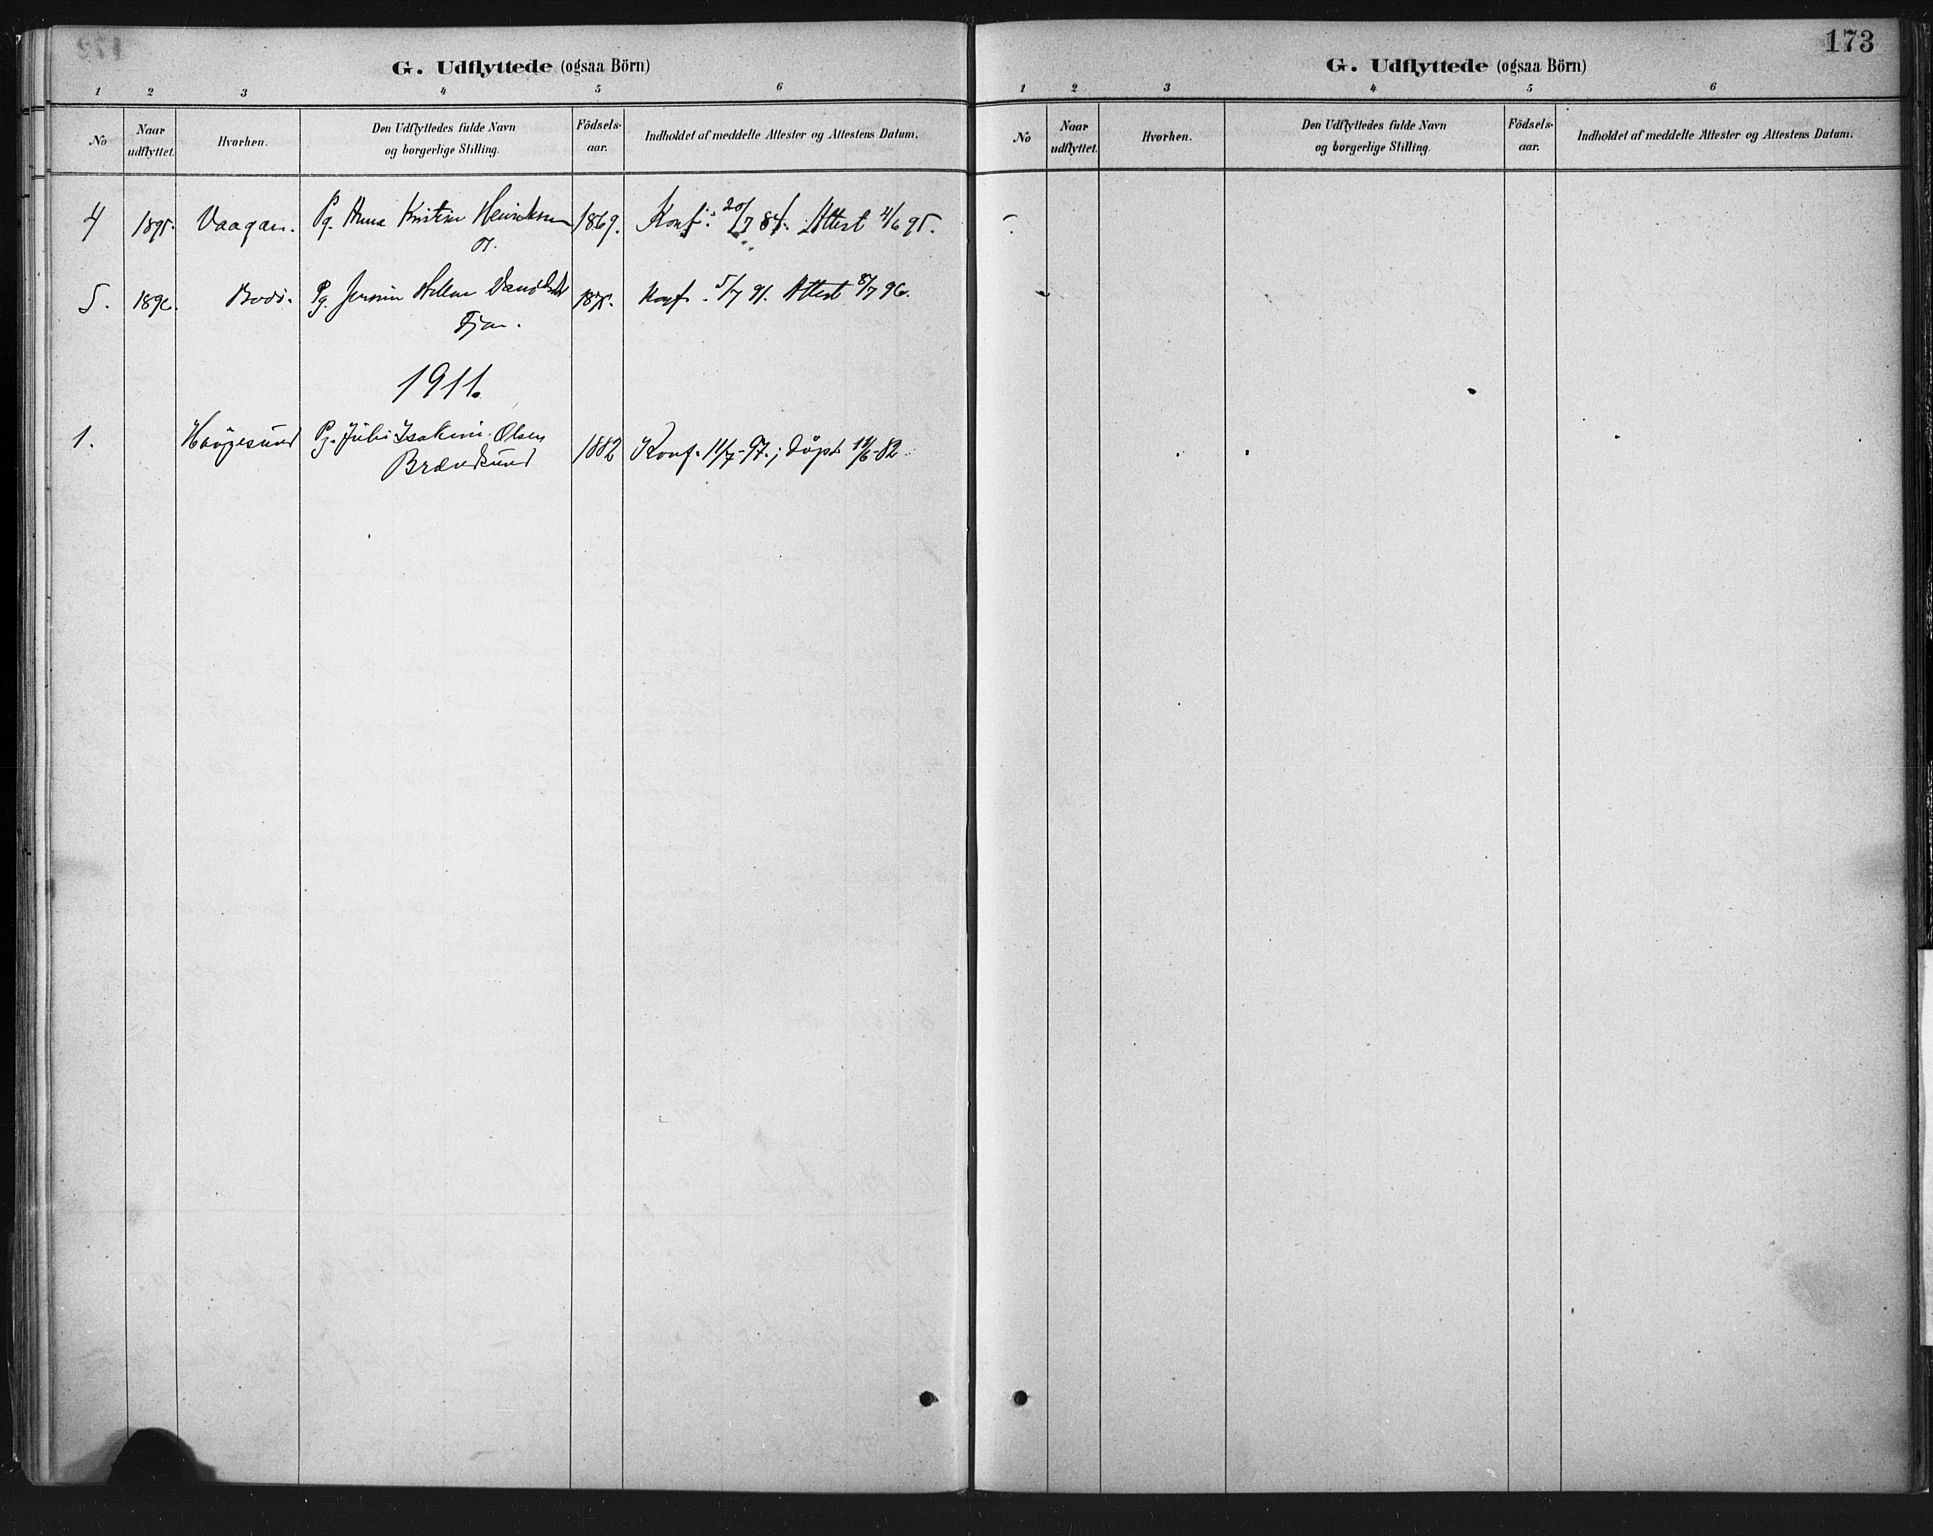 173
G. Udflyttede (ogsaa Börn)
1 2 3 4 5 6
No Naar udflyttet. Hvorhen. Den Udflyttedes fulde Navn og borgerlige Stilling. Födsels-aar. Indholdet af meddelte Attester og Attestens Datum.
4 1895. Vaagan. Pg. Anna Kristine Henriksen 1869. Konf: 20/7 84. Attest 4/6 95.
5. 1896. Bodö. Pg. Hellene 1875. Konf. 5/7 91. Attest 8/7 96.
1911.
1. Haugesund Pg. Julie Isakine Olsen 1882 Konf. 11/7-97.; döpt 11/6-82
Brændsund
G. Udflyttede (ogsaa Börn)
1 2 3 4 5 6
No Naar udflyttet. Hvorhen. Den Udflyttedes fulde Navn og borgerlige Stilling. Födsels-aar. Indholdet af meddelte Attester og Attestens Datum.